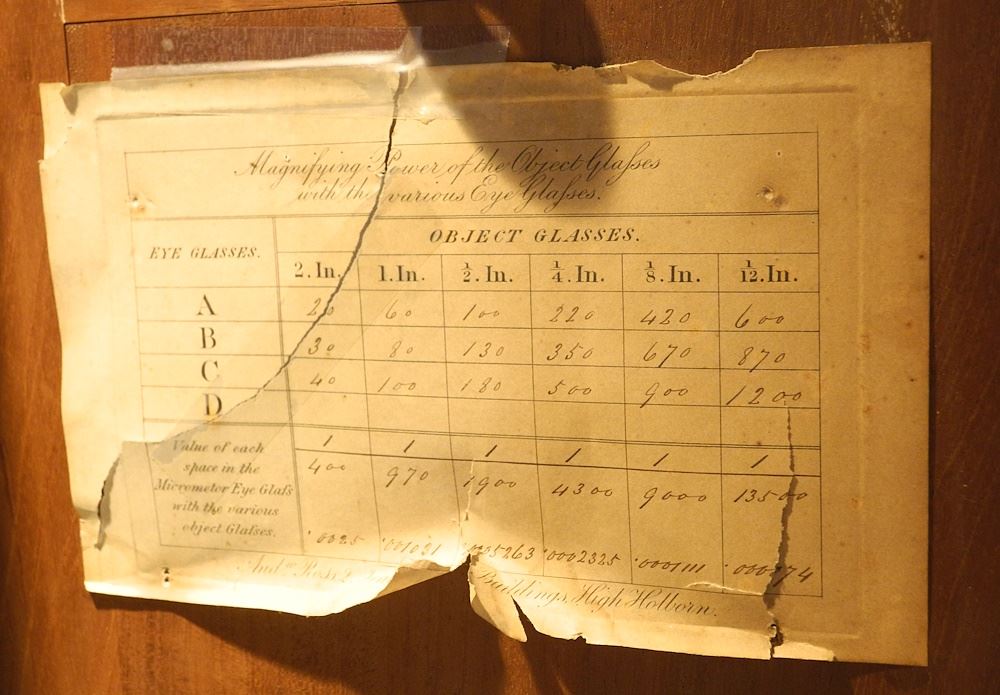 Magnifying Power of the Object Glaſses
with the various Eye Glaſses.
EYE GLASSES.
OBJECT GLASSES.
2. In. 1. In. 1/2. In. 1/4. In. 1/8. In. 1/12. In.
A 20 60 100 220 420 600
B 30 80 130 350 670 870
C 40 100 180 500 900 1200
D
Value of each
space in the
Micrometer Eye Glaſs
with the various
object Glaſses.
1 1 1 1 1 1
400 970 1900 4300 9000 13500
.0025 .001031 .0002325 .000111 .000074
And.w Ross 2 Buildings, High Holborn.